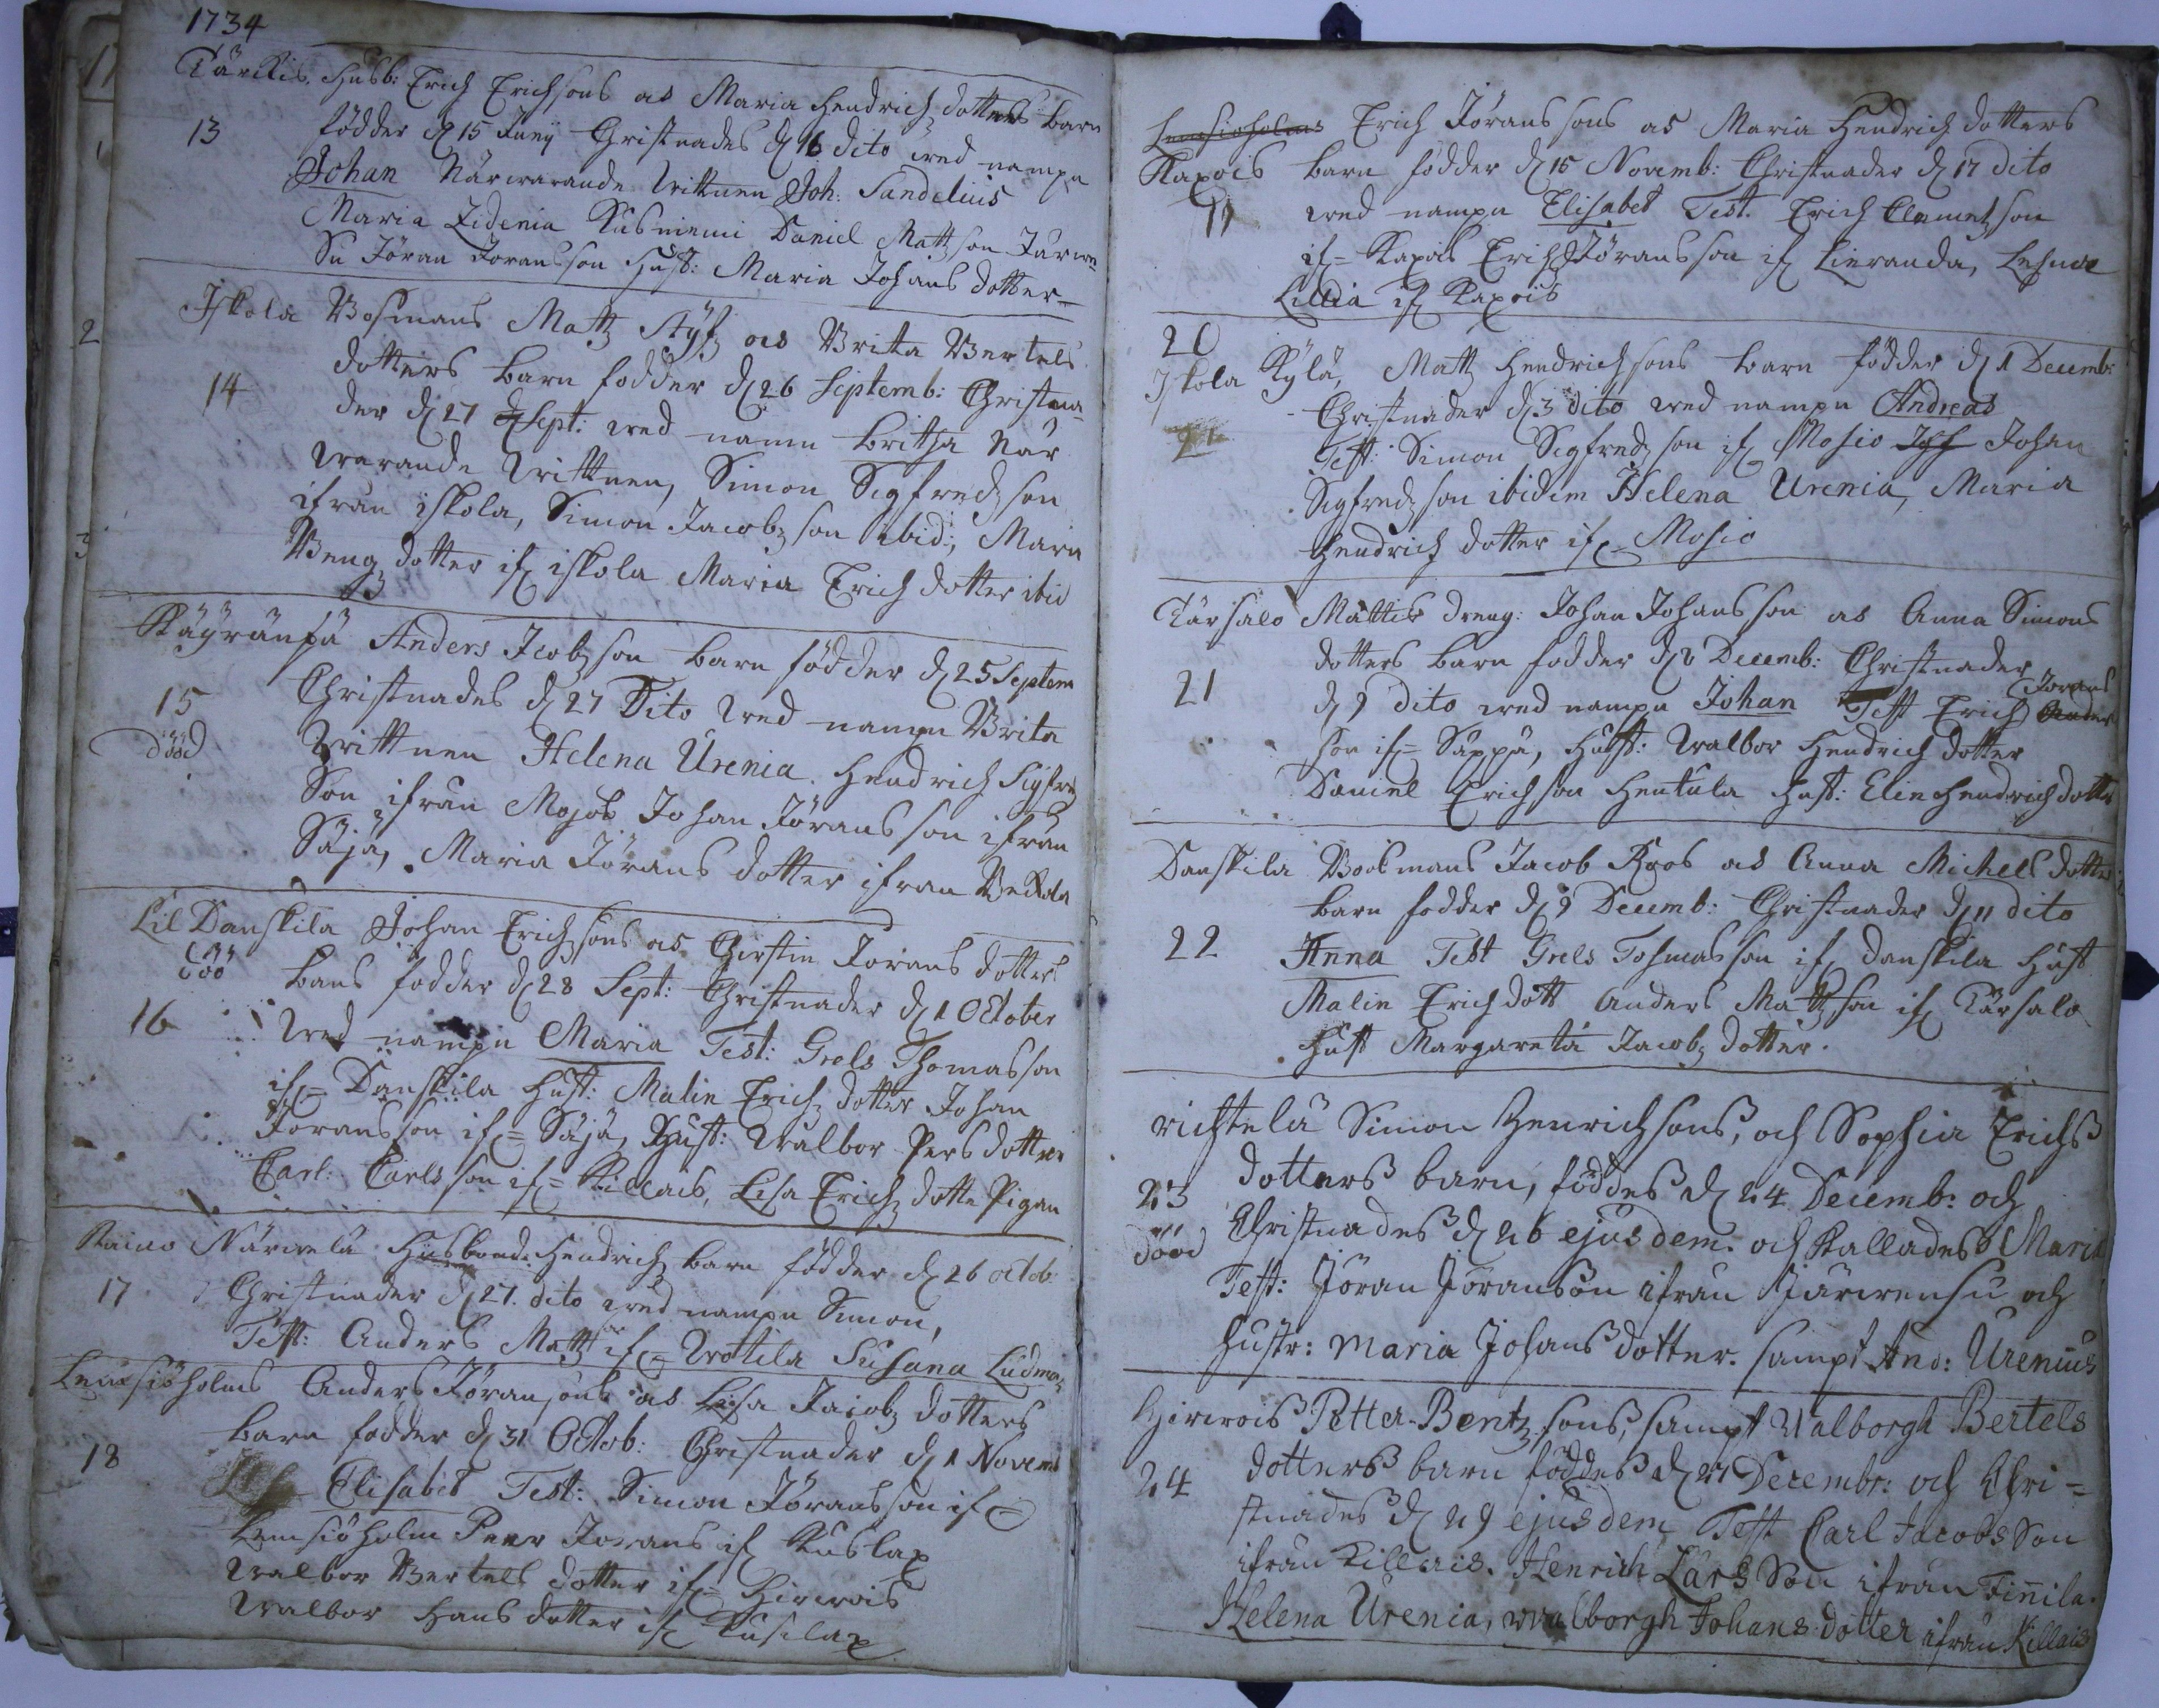 1734
Kärckis. Husb: Erich Erichsons as Maria Hendrich dotters barn
13 födder d 15 Junij Christnades d 16 dito wed nampn
Johan Närwarande Wittnen Joh: Sandelius
Maria Zidenia Kusniemi Daniel Mattson Järwen
Su Jöran Joransson Hust: Maria Johans dotter
Iskola Bosmans Matz Styf as Brita Bertels
dotters barn födder d 26 Septemb: Christna
14 der d 27 Sept: wed namn Britha När
warande Wittnen, Simon Sigfredson
ifrån iskola, Simon Jacobson ibid:, Maria
Bengdotter if iskola Maria Erich dotter ibid
Käyränpä Anders Jcobson barn födder d 25 Septem
15 Christnades d 27 Dito wed nampn Brita
dööd Wittnen Helena Urenia. Hendrich Sigfred
Son ifrån Mojos Johan Jöransson ifrån
Säjä, Maria Jörans dotter ifrån
Lil Danskila Johan Erichsons as Chirstin Jörans dotters
döö barn födder d 28 Sept: Christnader d 1 October
16 wed nampn Maria Test: Grels Thomasson
if= Danskila Hust: Malin Erich dotter Johan
Joransson if= Säjä, Hust: Walbor Persdotter
Carl: Carlsson if= Killais, Lisa Erich dotte Pigan
Raimo Närwelä Husbond: Hendrich barn födder d 26 octob:
17 Christnader d 27. dito wed nampn Simon,
Test: Anders Matt if= Wotila Susana Ludma
Lemsiöholms Anders Jöransons as Lisa Jacob dotters
barn födder d 31 Octob: Christnader d 1 Novemb
18 Elisabet Test: Simon Jöransson if=
Lemsiöholm Peer Jorans if Kuslax
Walbor Bertels dotter if= Hirwois
Walbor Hans dotter if Kuslax
Lemsioholms Erich Jöranssons as Maria Hendrich dotters
Kapois barn födder d 15 Novemb: Christnader d 17 dito
19 wed nampn Elisabet Test. Erich Clemetson
if= Kapois Erich Jöransson if Lieranda,
Lillia if Kapois
20
Iskola Kylä, Matz Hendrichsons barn födder d 1 Decemb:
Christnader d 3 dito wed nampn Andreas
Test: Simon Sigfredson if Mosio Johan
Sigfredson ibidem Helena Urenia, Maria
Hendrich dotter if= Mosio
Kärsalo Mattis dreng: Johan Johansson as Anna Simons
dotters barn födder d 8 Decemb: Christnader
21 d 9 dito wed nampn Johan Test Erich Jorans
son if= Säppä, Hust: Walbor Hendrich dotter
Daniel Erichson Hentula Hust: Elin Hendrich dotter
Danskila Boosmans Jacob Roos as Anna Michels dotter
barn födder d 9 Decemb: Christnader d 11 dito
22 Anna Test Grels Tohmasson if Danskila Hust
Malin Erichdott Anders Mattson if Kärsalo
Hust Margareta Jacob dotter.
richtelä Simon Henrichsons, och Sophia Erichs
dotters barn, föddes d 24 Decemb: och
23 Christnades d 26 ejusdem. och Kallades Maria
dööd
Test: Jöran Joranson ifrån Järwensu och
hustr: Maria Johans dotter. sampt And: Urenius
Hirwois Petter Bentz sons, sampt Walborgh Bertels
24 dotters barn föddes d 27 Decembr: och Chri=
stnades d 29 ejusdem Test Carl Jacobs Son
ifrån Killais. Henrich Lars Son ifrån Finnila.
Helena Urenia, walborgh Johans dotter ifrån Killais